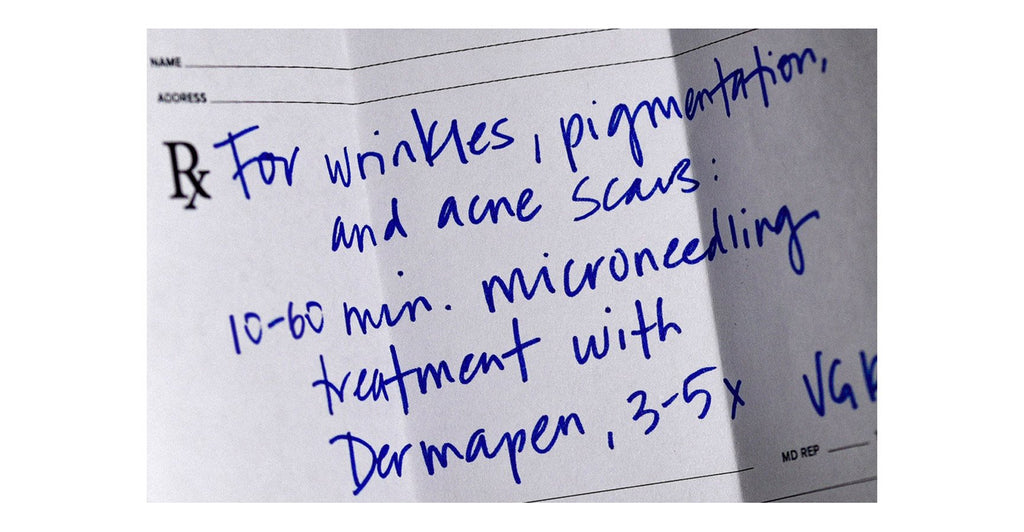 NAME
ADDRESS
Rx For wrinkles, pigmentation,
and acne scars:
10-60 min. microneedling
treatment with
Dermapen, 3-5x
MD REP